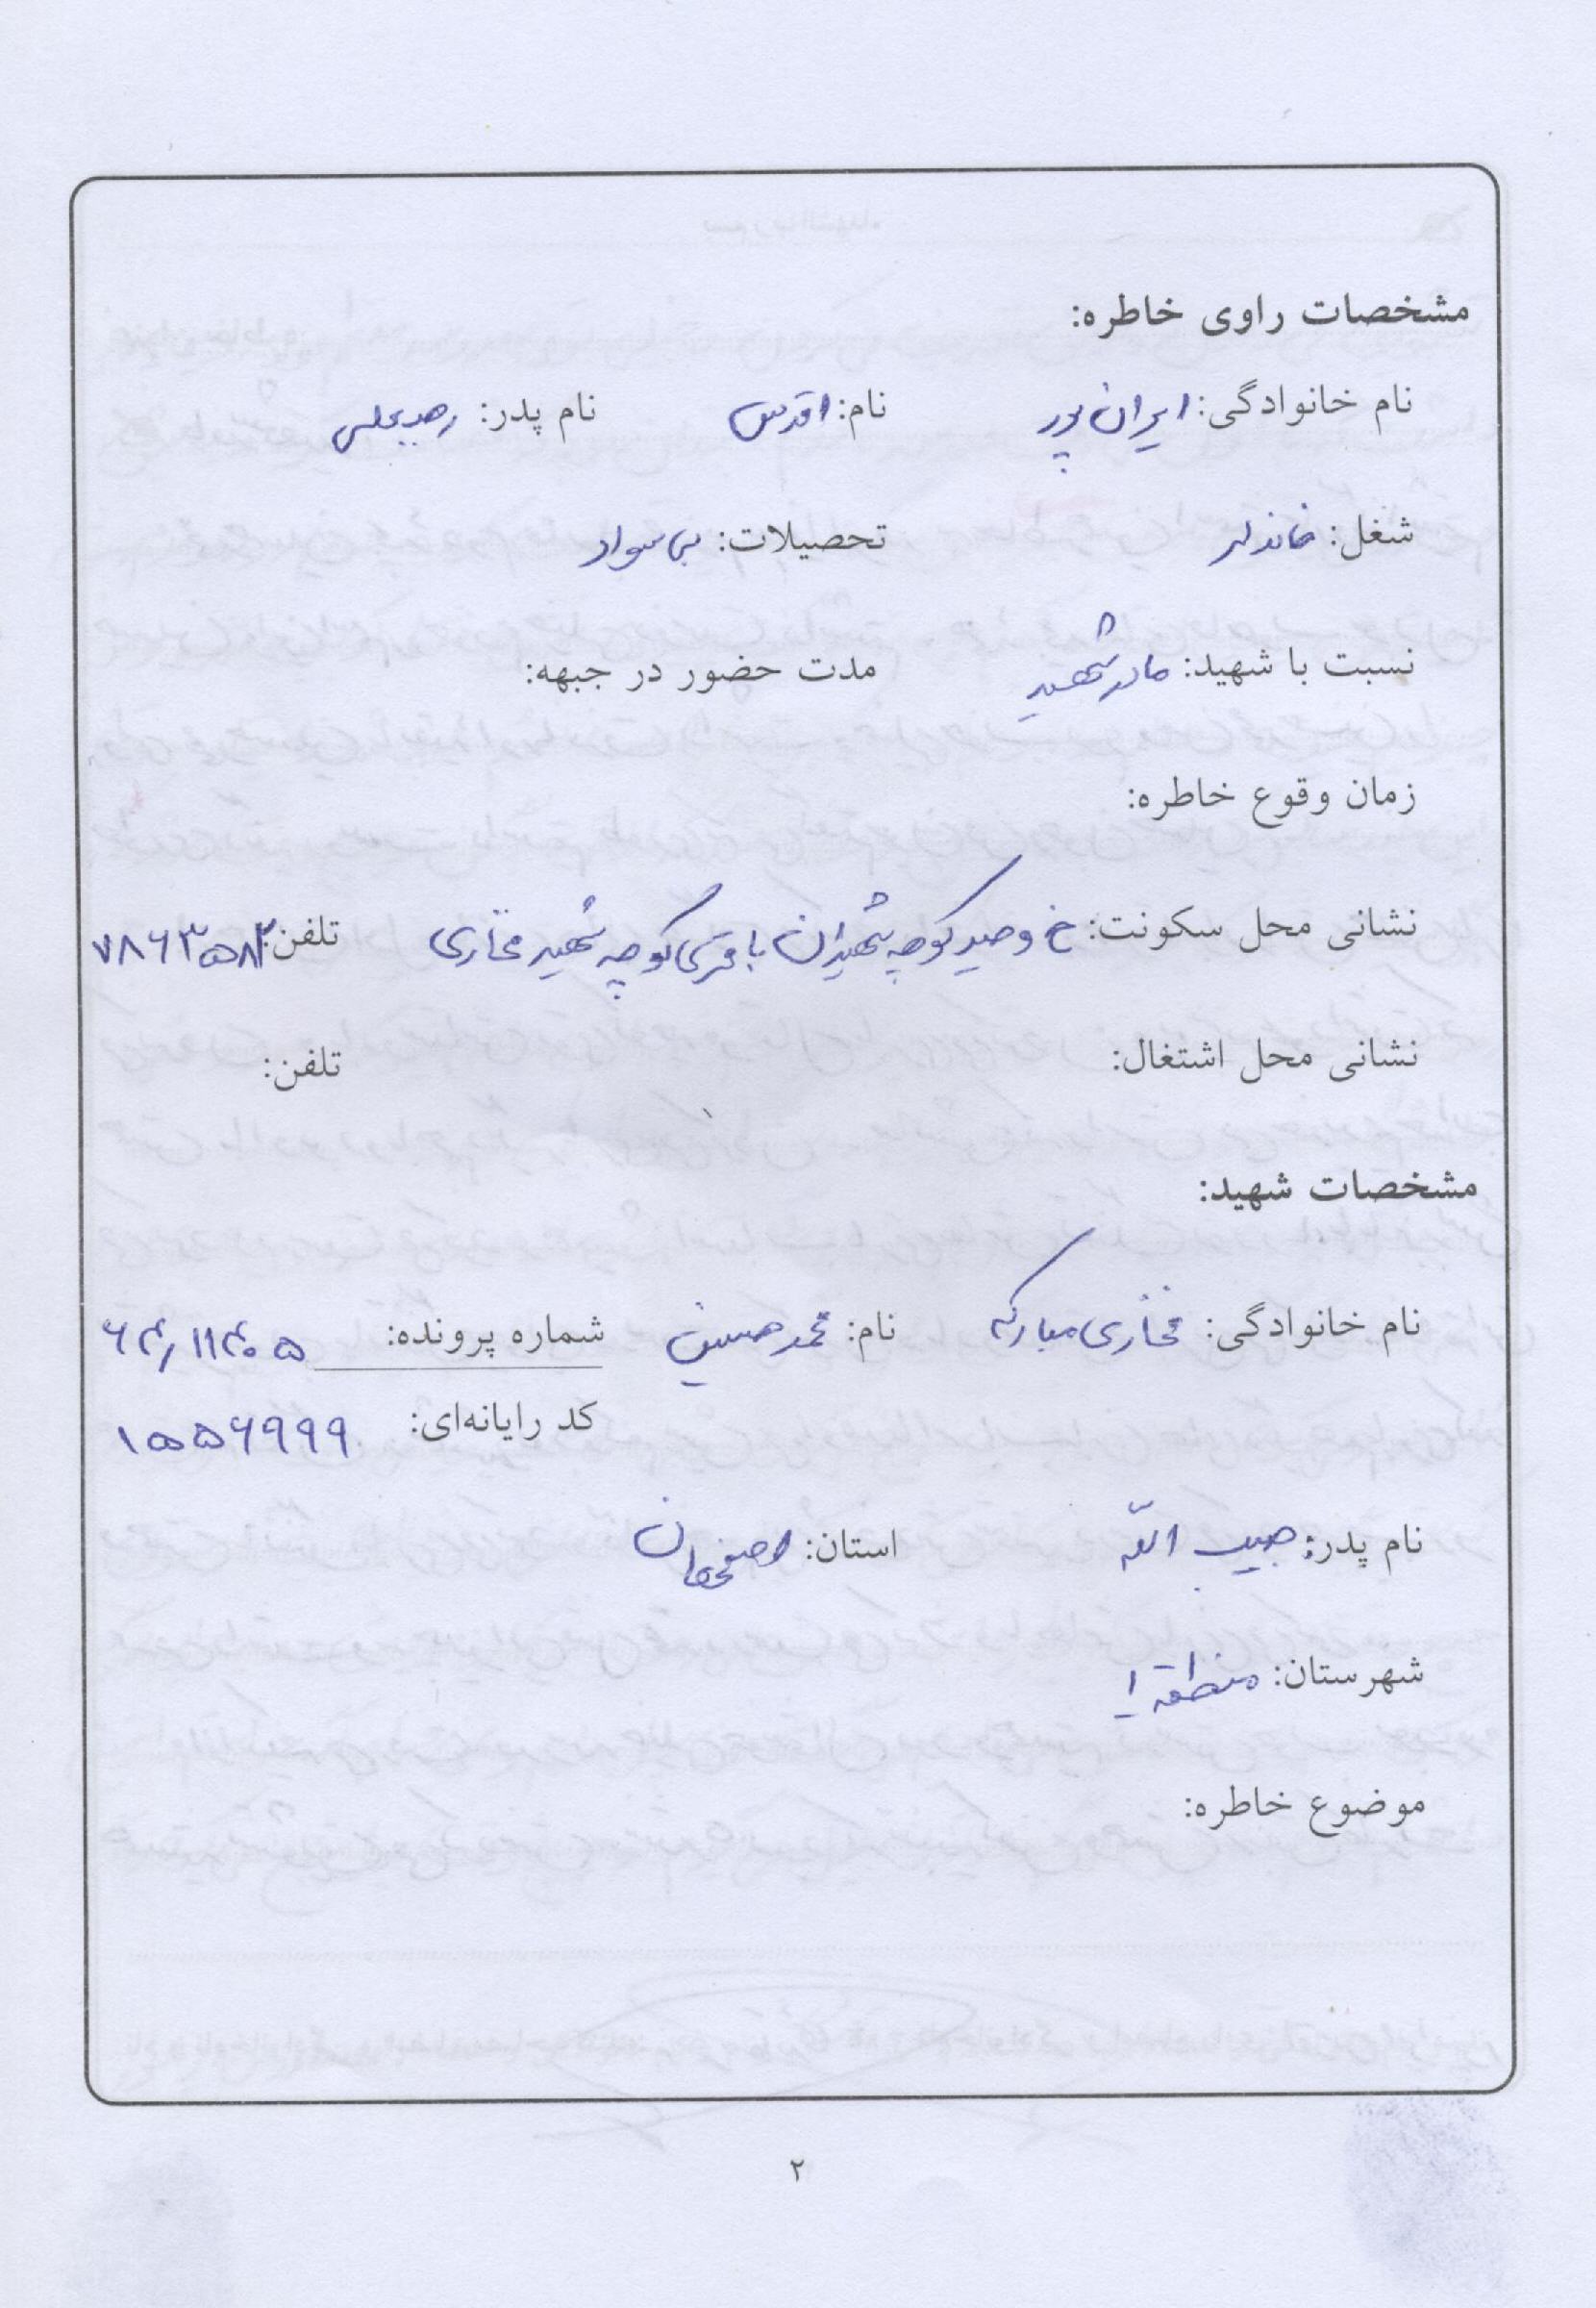 مشخصات راوی خاطره:
نام خانوادگی: ایران پور نام: اقدس نام پدر: رجبعلی
شغل: خانه‌دار تحصیلات: بی سواد
نسبت با شهید: مادر شهید مدت حضور در جبهه:
زمان وقوع خاطره:
نشانی محل سکونت: خ وحید کوچه شهیدان باقری کوچه شهید فخاری تلفن: ۷۸۶۳۵۸۲
نشانی محل اشتغال: تلفن:
مشخصات شهید:
نام خانوادگی: فخاری مبارکه نام: محمد حسین شماره پرونده: ۶۴/۱۱۴۰۵
کد رایانه‌ای: ۱۵۵۶۹۹۹
نام پدر: حبیب الله استان: اصفهان
شهرستان: منطقه ۱
موضوع خاطره:
۲